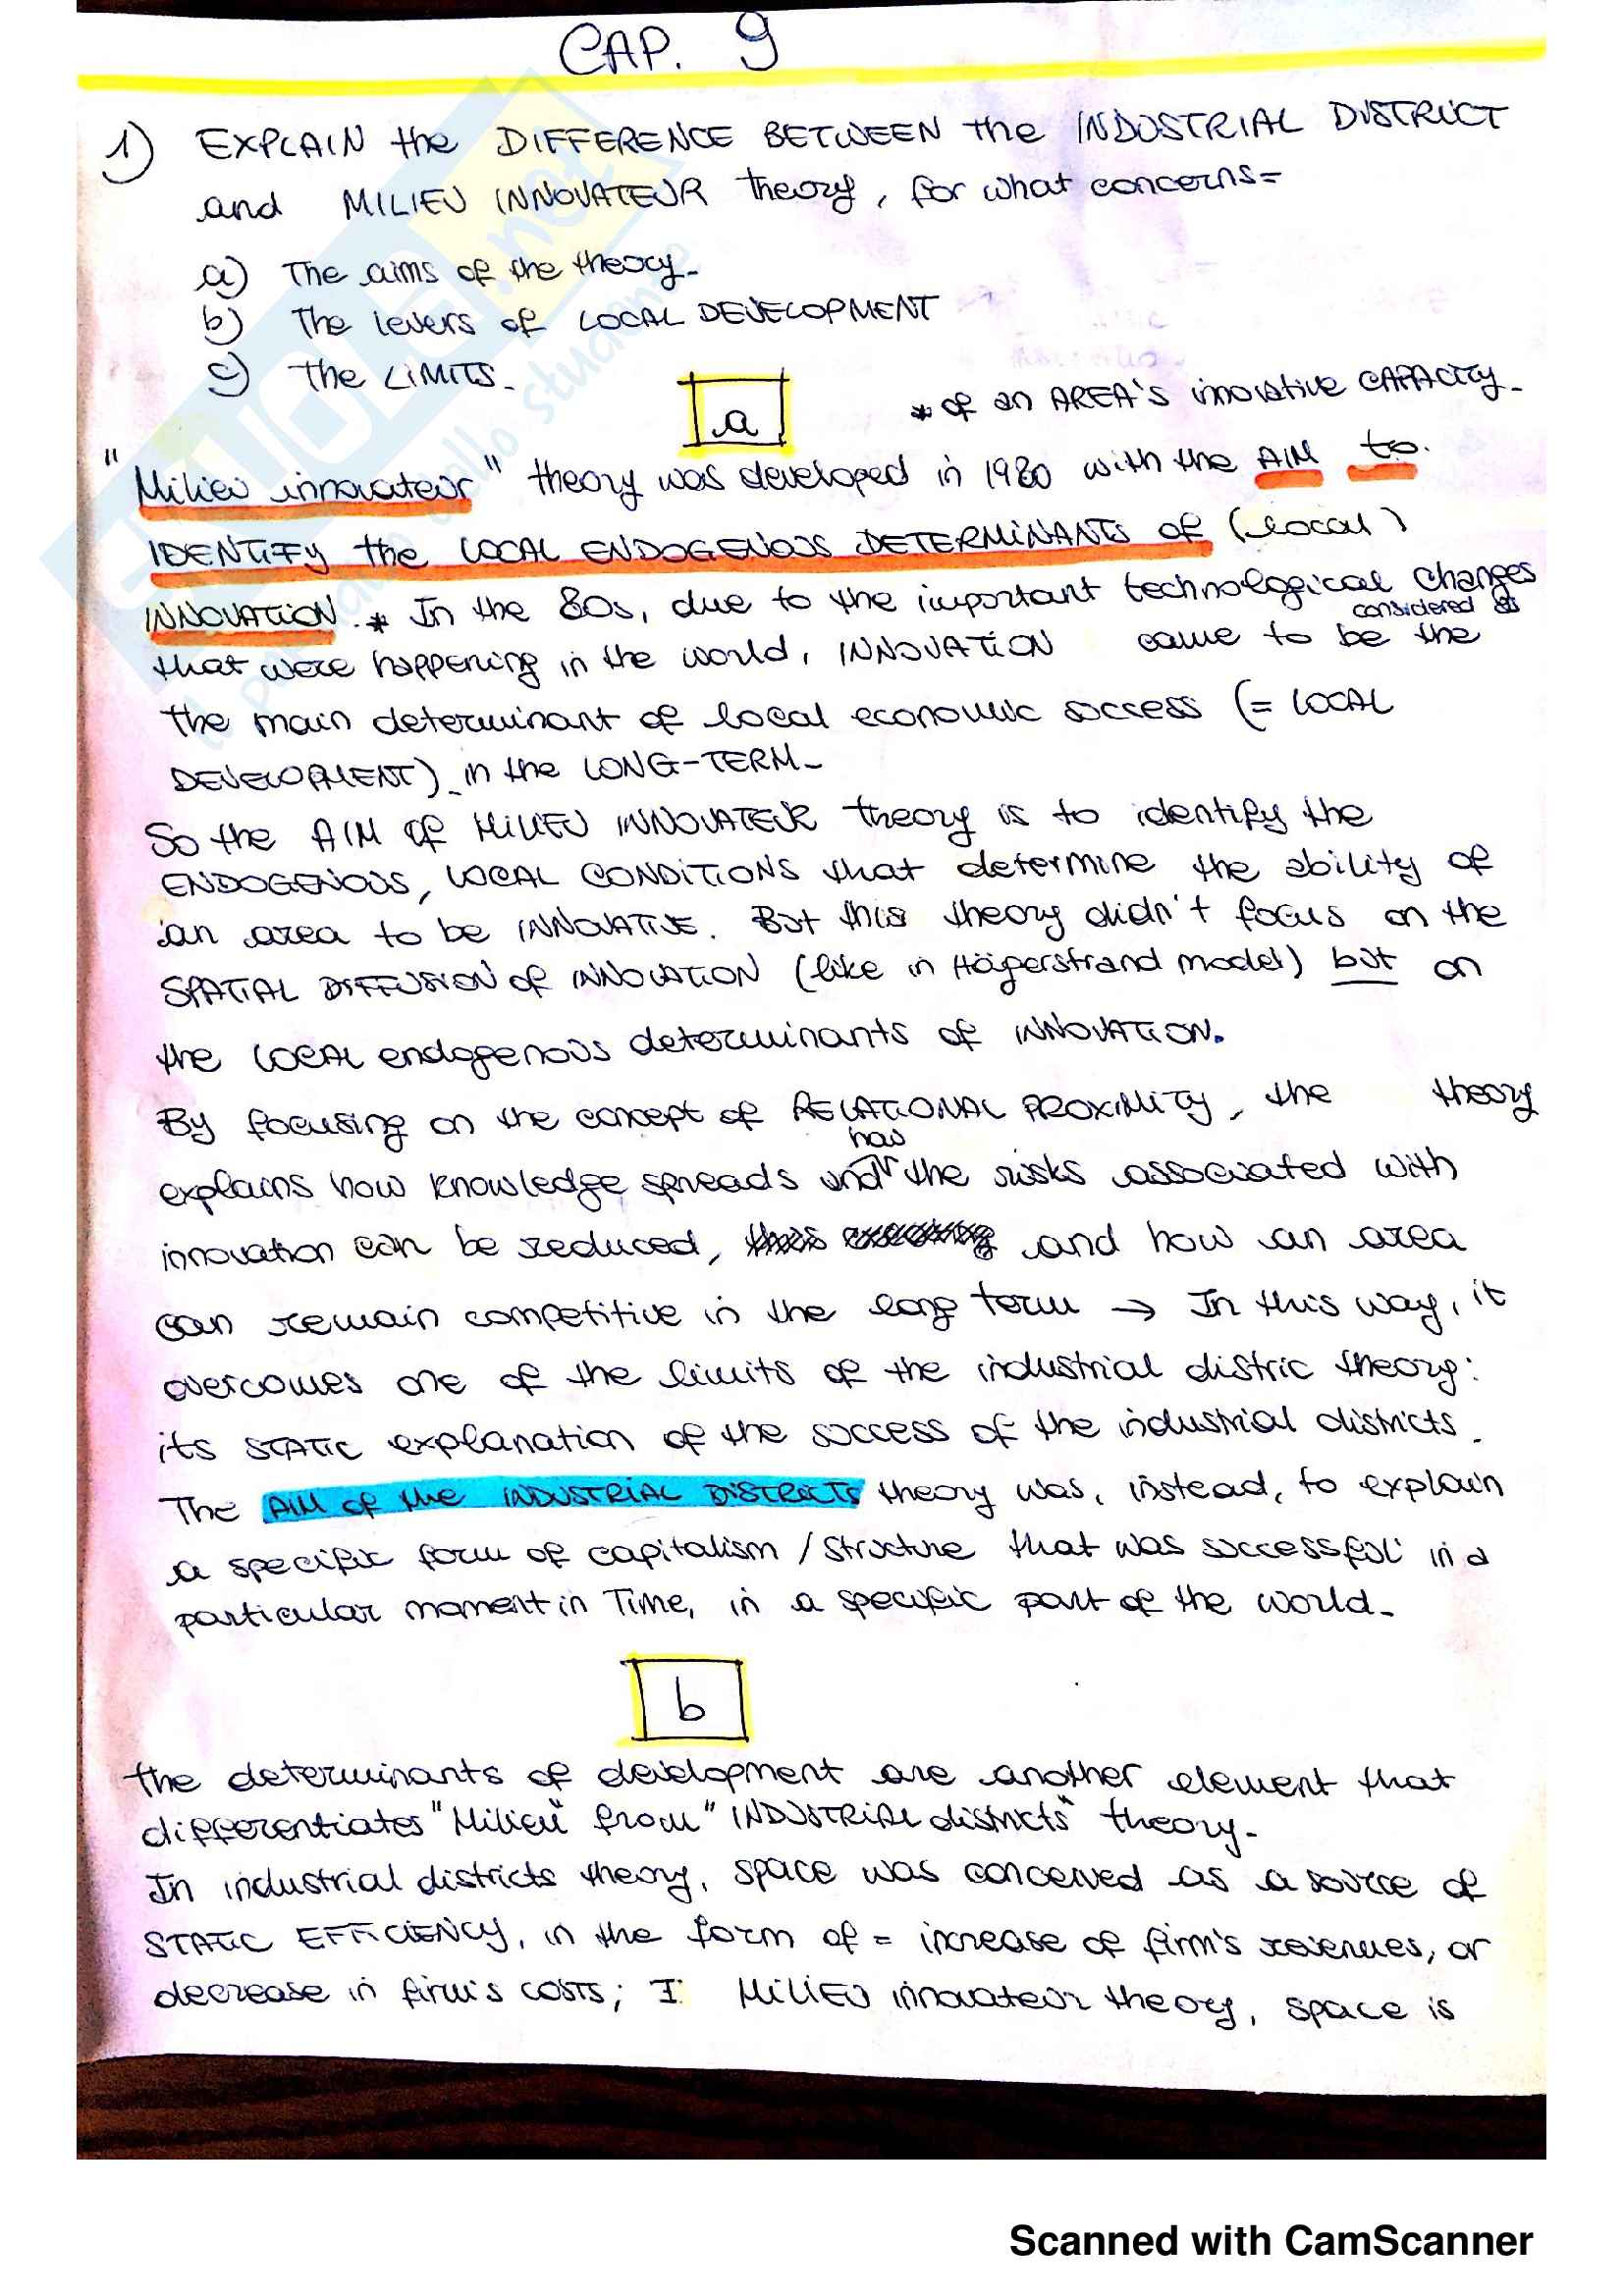 CAP. 9
1) EXPLAIN the DIFFERENCE BETWEEN the INDUSTRIAL DISTRICT
and MILIEU INNOVATEUR theory, for what concerns=
a) The aims of the theory-
b) The levers of LOCAL DEVELOPMENT
c) The LIMITS-
a
* of an AREA'S innovative CAPACITY-
"Milieu innovateur" theory was developed in 1980 with the AIM to
IDENTIFY the LOCAL ENDOGENOUS DETERMINANTS of (local)
INNOVATION.* In the 80s, due to the important technological changes
considered as
that were happening in the world, INNOVATION came to be the
the main determinant of local economic success (= LOCAL
DEVELOPMENT) in the LONG-TERM-
So the AIM of MILIEU INNOVATEUR theory is to identify the
ENDOGENOUS, LOCAL CONDITIONS that determine the ability of
an area to be INNOVATIVE. But this theory didn't focus on the
SPATIAL DIFFUSION of INNOVATION (like in Hägerstrand model) but on
the LOCAL endogenous determinants of INNOVATION.
By focusing on the concept of RELATIONAL PROXIMITY, the theory
how
explains how knowledge spreads and the risks associated with
innovation can be reduced, and how an area
can remain competitive in the long term → In this way, it
overcomes one of the limits of the industrial distric theory:
its STATIC explanation of the success of the industrial districts.
The AIM of the INDUSTRIAL DISTRICTS theory was, instead, to explain
a specific form of capitalism / structure that was successful in a
particular moment in Time, in a specific part of the world-
b
the determinants of development are another element that
differentiates "Milieu" from "INDUSTRIAL districts" theory-
In industrial districts theory, space was conceived as a source of
STATIC EFFICIENCY, in the form of = increase of firm's revenues, or
decrease in firm's costs; I MILIEU innovateur theory, space is
Scanned with CamScanner